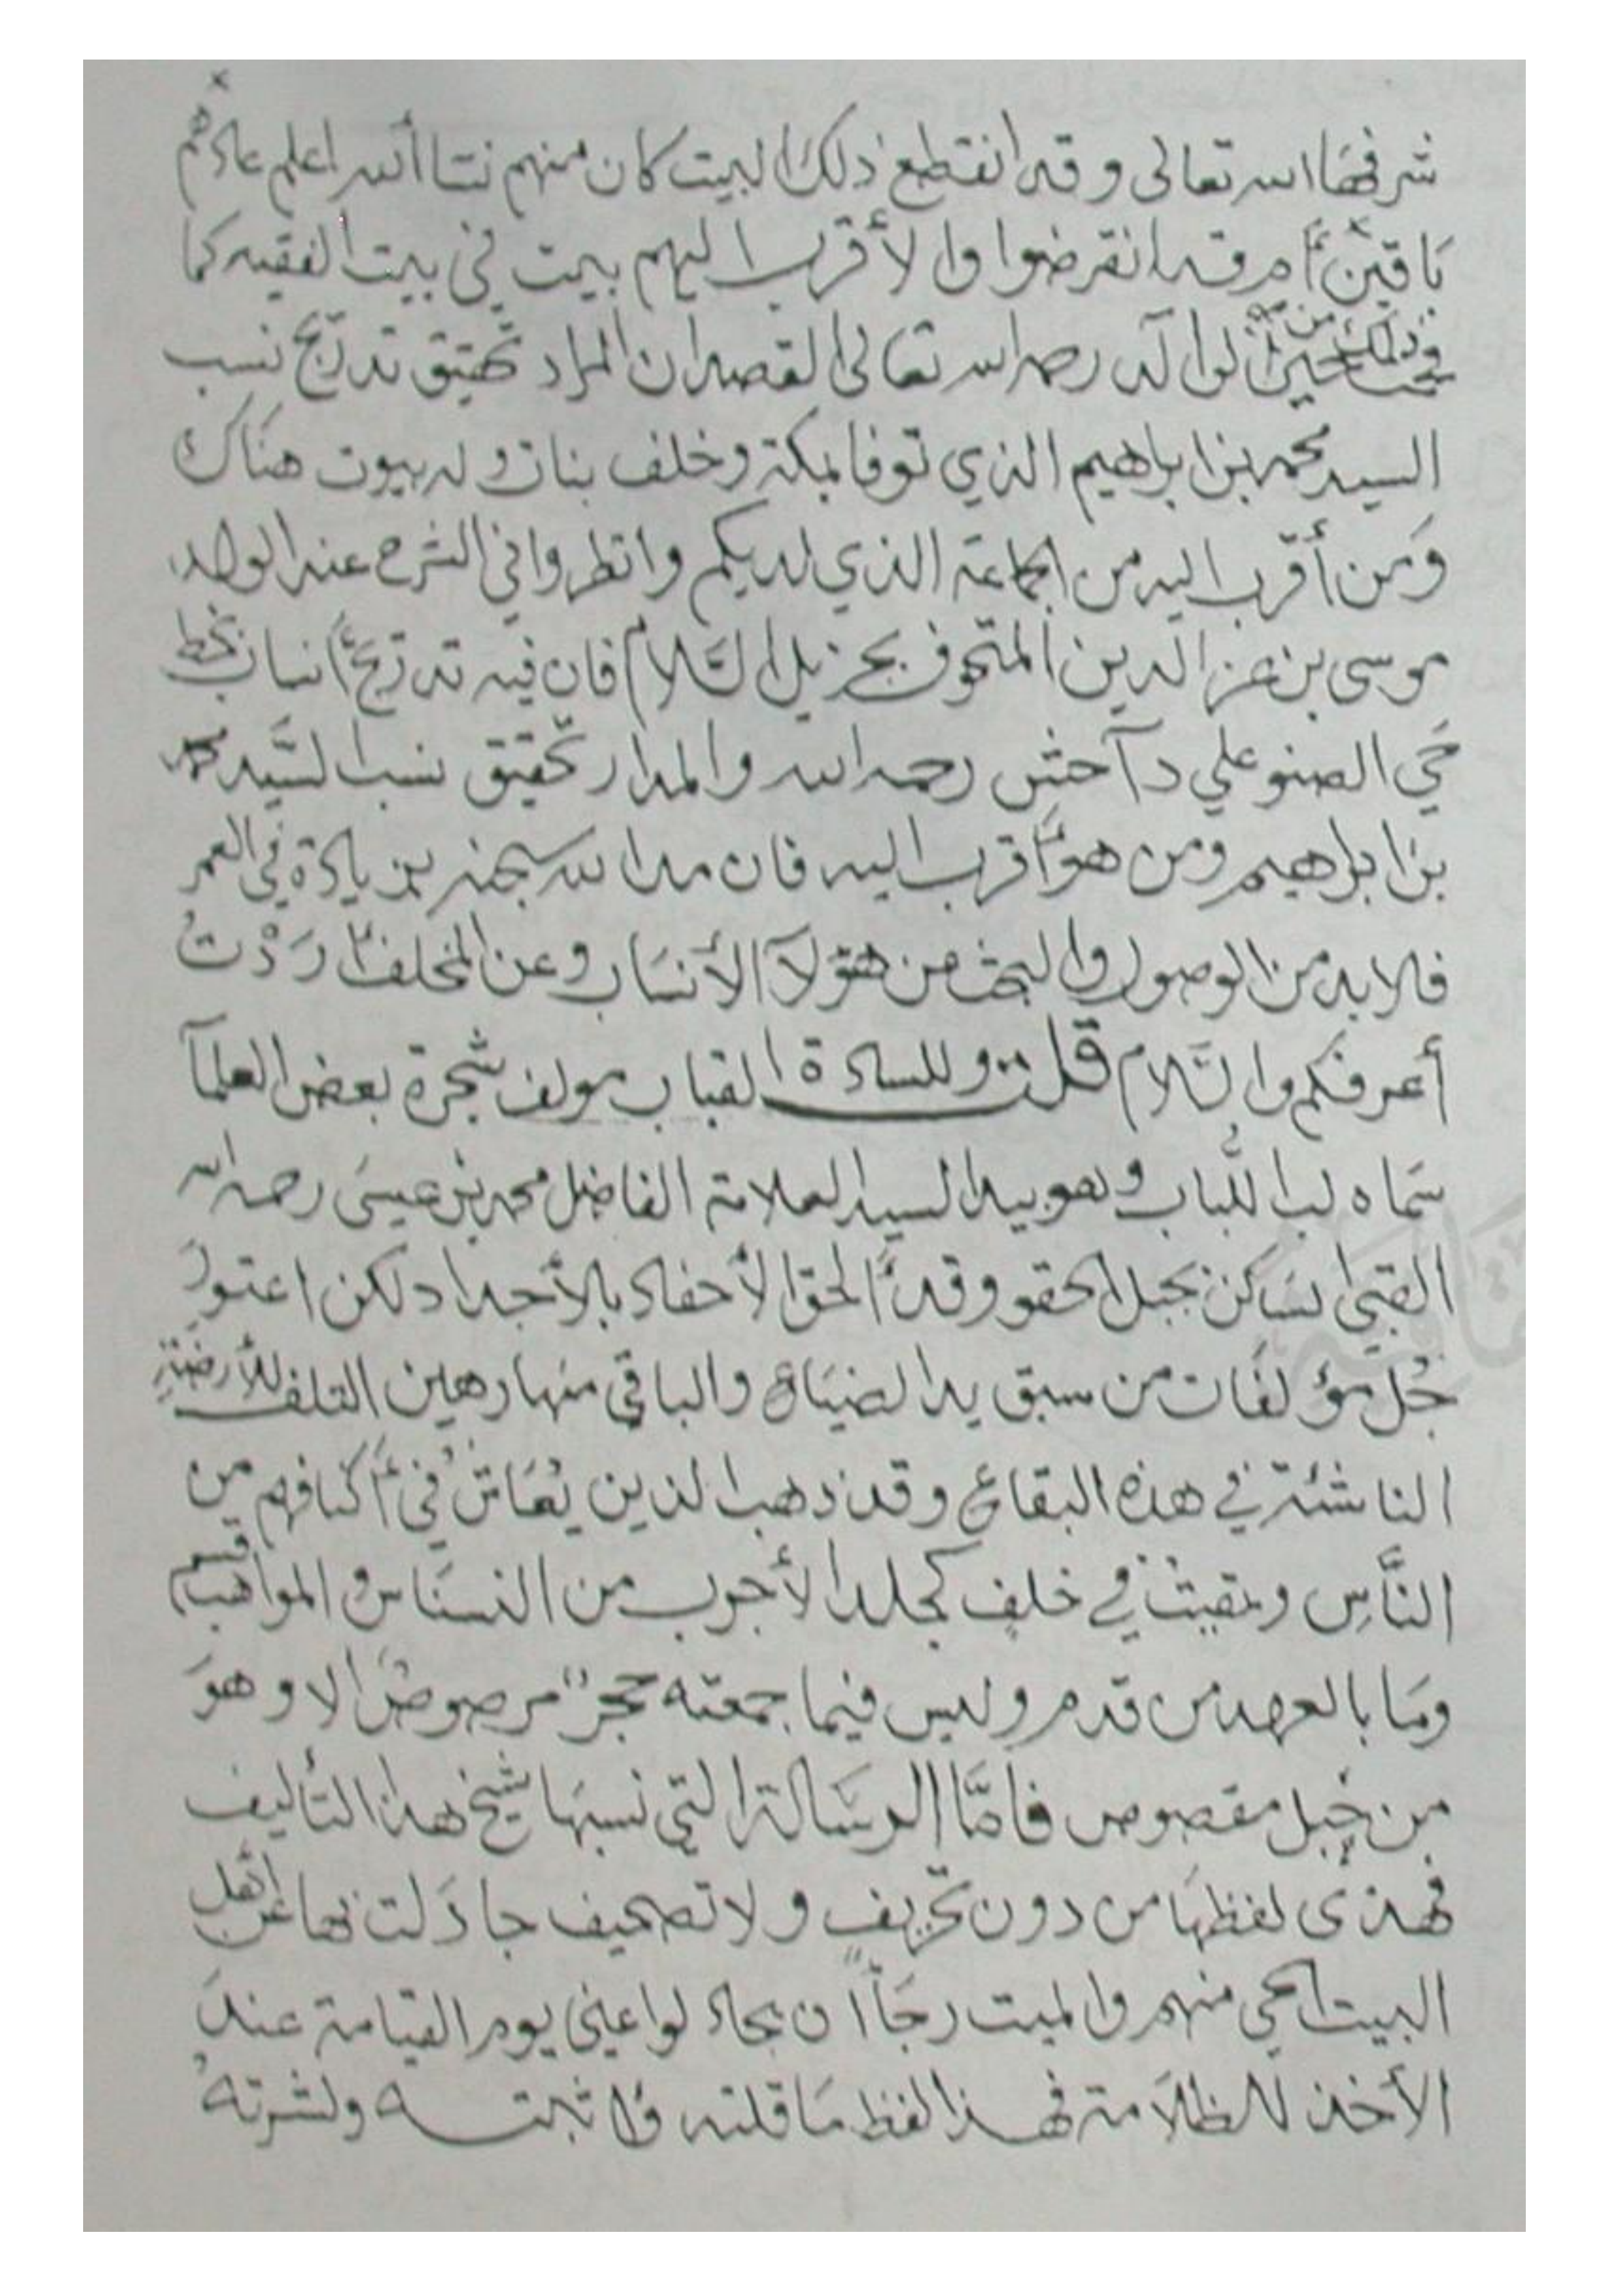 شرفها الله تعالى وقد انقطع ذلك البيت كان منهم نسا الله اعلم عادهم
باقين أم قد انقرضوا والأقرب اليهم بيت في بيت الفقيه كما
ذلك من الوالد رحمه الله تعالى القصد ان المراد تحقيق تدريج نسب
السيد محمد بن ابراهيم الذي توفا بمكة وخلف بنات وله بيوت هناك
ومن أقرب اليه من الجماعة الذي لديكم وانظروا في الشرح عند الولد
موسى بن عز الدين المتحوف بجزيل السلام فان فيه تدريج أنساب بخط
حي الصنو علي دآحش رحمه الله والمدار تحقيق نسب السيد محمد
بن ابراهيم ومن هو أقرب اليه فان مد الله سبحنه بزيادة في العمر
فلابد من الوصول والبحث من هؤلآ الأنساب وعن المخلف أردت
أعرفكم والسلام قلت وللسادة القباب مولف شجرة بعض العلمآ
سماه لب اللباب وهو بيد السيد العلامة الفاضل محمد بن عيسى رحمه الله
القبي ساكن بجبل الحقو وقد ألحق الأحفاد بالأجداد لكن اعتور
جُل مؤلفات من سبق يد الضياع والباقي منها رهين التلف للأرضة
الناشئة في هذه البقاع وقد ذهب الذين يُعاش في أكنافهم من
الناس وبقيت في خلف كجلد الأجرب من النسناس والمواهب قسم
وما بالعهد من قدم وليس فيما جمعته حجر مرصوص الا وهو
من جبل مقصوص فامّا الرسالة التي نسبها شيخ هذا التأليف
فهذى لفظها من دون تحريف ولا تصحيف جادلت بها عن أهل
البيت الحي منهم والميت رجاً ان يجادلوا عني يوم القيامة عند
الأخذ للظلامة فهذا لفظ ما قلته واثبته ونشرته